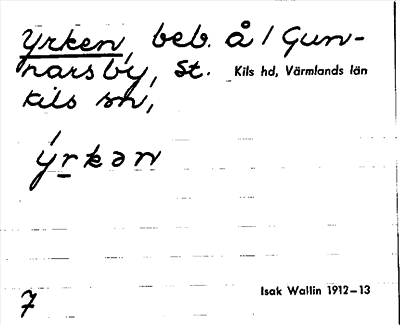 Yrken, beb. å 1 Gun-
narsby, St. Kils hd, Värmlands län
kils sn,
ýrkən
7 Isak Wallin 1912–13